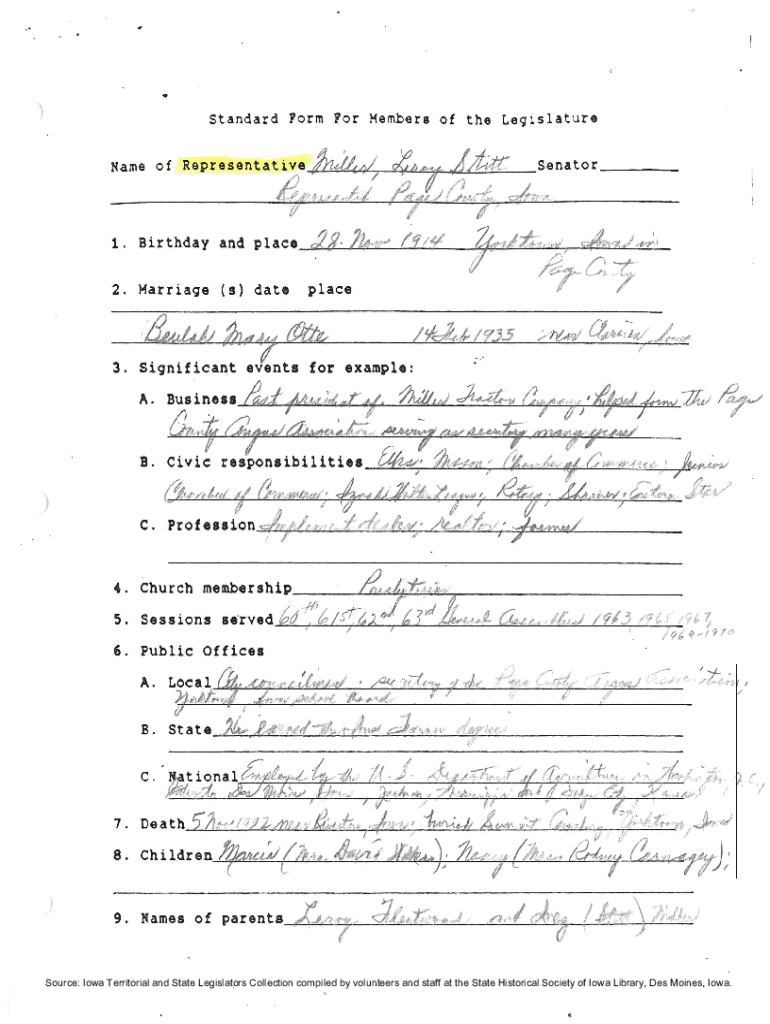 Standard Form For Members of the Legislature
Name of Representative Miller, Leroy Stitt Senator
Represented Page County, Iowa
1. Birthday and place 28 Nov 1914 Yorktown, Iowa in
Page County
2. Marriage (s) date place
Beulah Mary Otte 14 Feb 1935 near Clarinda, Iowa
3. Significant events for example:
A. Business Past president of Miller Tractor Company; helped form the Page
County Angus Association serving as secretary many years
B. Civic responsibilities Elks; Mason; Chamber of Commerce; Junior
Chamber of Commerce; Izaak Walton League; Rotary; Shriner; Eastern Star
C. Profession Implement dealer; realtor; farmer
4. Church membership Presbyterian
5. Sessions served 60th, 61st, 62nd, 63rd General Assemblies 1963, 1965, 1967,
1969-1970
6. Public Offices
A. Local City councilman; secretary of the Page County Angus Association;
Yorktown, Iowa school board
B. State He earned the Iowa Farmer degree
C. National Employed by the U.S. Department of Agriculture in Washington, D.C.,
Des Moines, Iowa, Jackson, Mississippi and Dodge City, Kansas
7. Death 5 Nov 1992 near Riverton, Iowa; buried Summit Cemetery, Yorktown, Iowa
8. Children Marcia (Mrs. David ); Nancy (Mrs. Rodney Carnagey);
9. Names of parents Leroy Fleetwood and Inez (Stitt) Miller
Source: Iowa Territorial and State Legislators Collection compiled by volunteers and staff at the State Historical Society of Iowa Library, Des Moines, Iowa.